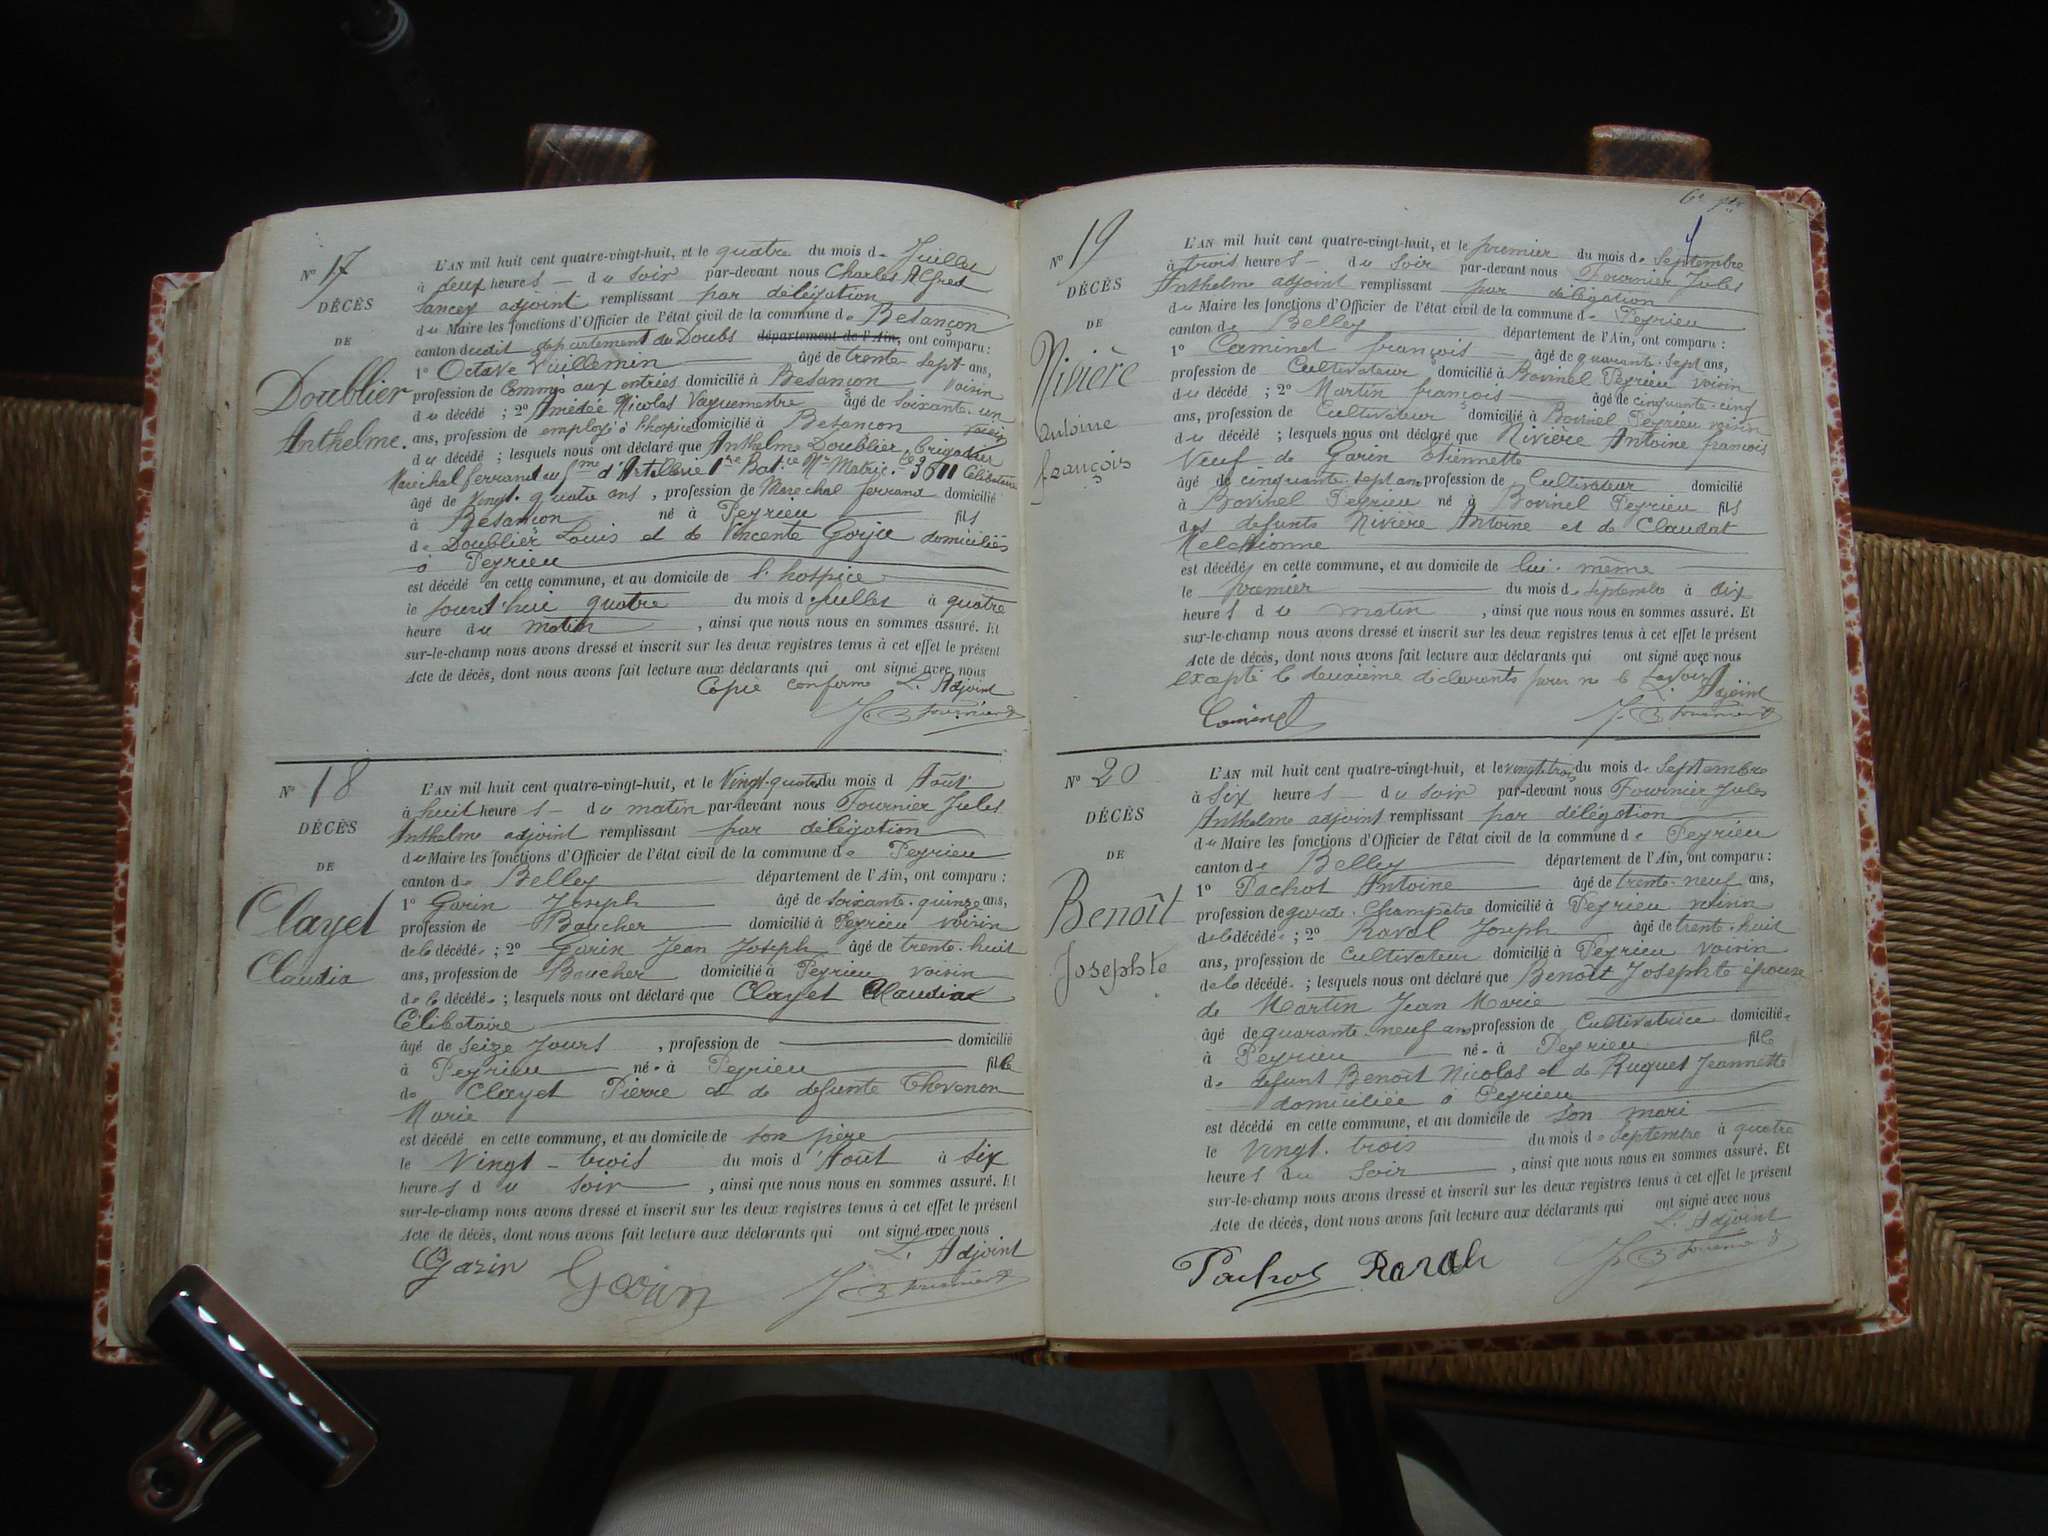 N° 17
DÉCÈS
DE
Doublier
Anthelme.
L'AN mil huit cent quatre-vingt-huit, et le quatre du mois de Juillet
à deux heures du soir par-devant nous Charles Alfred
Sancey adjoint remplissant par délégation
du Maire les fonctions d'Officier de l'état civil de la commune de Besançon
canton dudit département du Doubs département de l'Ain, ont comparu :
1° Octave Vuillemin âgé de trente-sept ans,
profession de Commis aux entrées domicilié à Besançon voisin
du décédé ; 2° Amédée Nicolas Vaguemestre âgé de soixante-un
ans, profession de employé à l'hospice domicilié à Besançon voisin
du décédé ; lesquels nous ont déclaré que Anthelme Doublier Brigadier
Marechal ferrant au 5me d'Artillerie 1re Bat.ie N° Matric. 3811 Célibataire
âgé de vingt-quatre ans, profession de Marechal ferrant domicilié
à Besançon né à Peyrieu fils
de Doublier Louis et de Vincente Gorjie domiciliés
à Peyrieu
est décédé en cette commune, et au domicile de l'hospice
le jourd'hui quatre du mois d Juillet à quatre
heure du matin, ainsi que nous nous en sommes assuré. Et
sur-le-champ nous avons dressé et inscrit sur les deux registres tenus à cet effet le présent
Acte de décès, dont nous avons fait lecture aux déclarants qui ont signé avec nous
Copie conforme L'Adjoint
J. Fournier
N° 18
DÉCÈS
DE
Clayet
Claudia
L'AN mil huit cent quatre-vingt-huit, et le Vingt-quatre du mois d Août
à huit heures du matin par-devant nous Fournier Jules
Anthelme adjoint remplissant par délégation
du Maire les fonctions d'Officier de l'état civil de la commune de Peyrieu
canton de Belley département de l'Ain, ont comparu :
1° Garin Joseph âgé de soixante-quinze ans,
profession de Boucher domicilié à Peyrieu voisin
de la décédée ; 2° Garin Jean Joseph âgé de trente-huit
ans, profession de Boucher domicilié à Peyrieu voisin
de la décédée ; lesquels nous ont déclaré que Clayet Claudia
Célibataire
âgé de seize jours, profession de domicilié
à Peyrieu née à Peyrieu fille
de Clayet Pierre et de defunte Thevenon
Marie
est décédé en cette commune, et au domicile de son père
le Vingt-trois du mois d'Août à six
heures du soir, ainsi que nous nous en sommes assuré. Et
sur-le-champ nous avons dressé et inscrit sur les deux registres tenus à cet effet le présent
Acte de décès, dont nous avons fait lecture aux déclarants qui ont signé avec nous
L'Adjoint
Garin Garin J. Fournier
N° 19
DÉCÈS
DE
Nivière
Antoine
françois
L'AN mil huit cent quatre-vingt-huit, et le premier du mois de Septembre
à trois heures du soir par-devant nous Fournier Jules
Anthelme adjoint remplissant par délégation
du Maire les fonctions d'Officier de l'état civil de la commune de Peyrieu
canton de Belley département de l'Ain, ont comparu :
1° Caminet françois âgé de quarante-sept ans,
profession de Cultivateur domicilié à Bovinel Peyrieu voisin
du décédé ; 2° Martin françois âgé de cinquante-cinq
ans, profession de Cultivateur domicilié à Bovinel Peyrieu voisin
du décédé ; lesquels nous ont déclaré que Nivière Antoine françois
Veuf de Garin Etiennette
âgé de cinquante-sept ans profession de Cultivateur domicilié
à Bovinel Peyrieu né à Bovinel Peyrieu fils
des defunts Nivière Antoine et de Claudat
Melchionne
est décédé en cette commune, et au domicile de lui-même
le premier du mois de septembre à dix
heures du matin, ainsi que nous nous en sommes assuré. Et
sur-le-champ nous avons dressé et inscrit sur les deux registres tenus à cet effet le présent
Acte de décès, dont nous avons fait lecture aux déclarants qui ont signé avec nous
excepté le deuxième declarants pour ne le savoir L'Adjoint
Caminet J. Fournier
N° 20
DÉCÈS
DE
Benoît
Josephte
L'AN mil huit cent quatre-vingt-huit, et le vingt-trois du mois de Septembre
à Six heures du soir par-devant nous Fournier Jules
Anthelme adjoint remplissant par délégation
du Maire les fonctions d'Officier de l'état civil de la commune de Peyrieu
canton de Belley département de l'Ain, ont comparu :
1° Pachot Antoine âgé de trente-neuf ans,
profession de garde-Champêtre domicilié à Peyrieu voisin
de la décédée ; 2° Raval Joseph âgé de trente-huit
ans, profession de Cultivateur domicilié à Peyrieu voisin
de la décédée ; lesquels nous ont déclaré que Benoît Josephte épouse
de Martin Jean Marie
âgé de quarante-neuf ans profession de Cultivatrice domiciliée
à Peyrieu née à Peyrieu fille
de defunt Benoît Nicolas et de Ruquet Jeannette
domiciliée à Peyrieu
est décédé en cette commune, et au domicile de son mari
le Vingt-trois du mois de Septembre à quatre
heures du Soir, ainsi que nous nous en sommes assuré. Et
sur-le-champ nous avons dressé et inscrit sur les deux registres tenus à cet effet le présent
Acte de décès, dont nous avons fait lecture aux déclarants qui ont signé avec nous
L'Adjoint
Pachot Raval J. Fournier